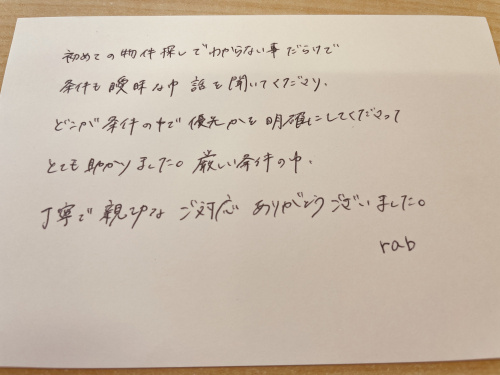 初めての物件探しでわからない事だらけで
条件も曖昧な中 話を聞いてくださり、
どこが条件の中で優先かを明確にしてくださって
とても助かりました。厳しい条件の中、
丁寧で親切なご対応ありがとうございました。
rab